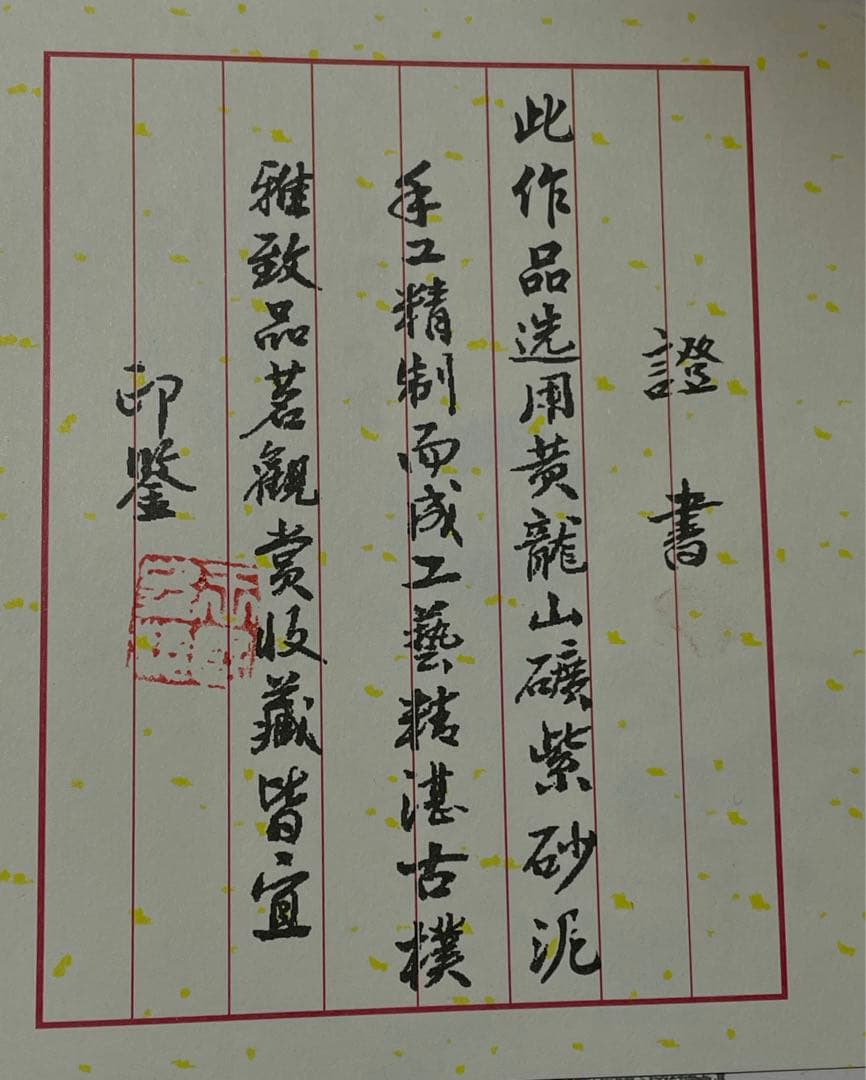 證書
此作品选用黄龍山礦紫砂泥
手工精制而成工藝精湛古樸
雅致品茗觀賞收藏皆宜
印鑒